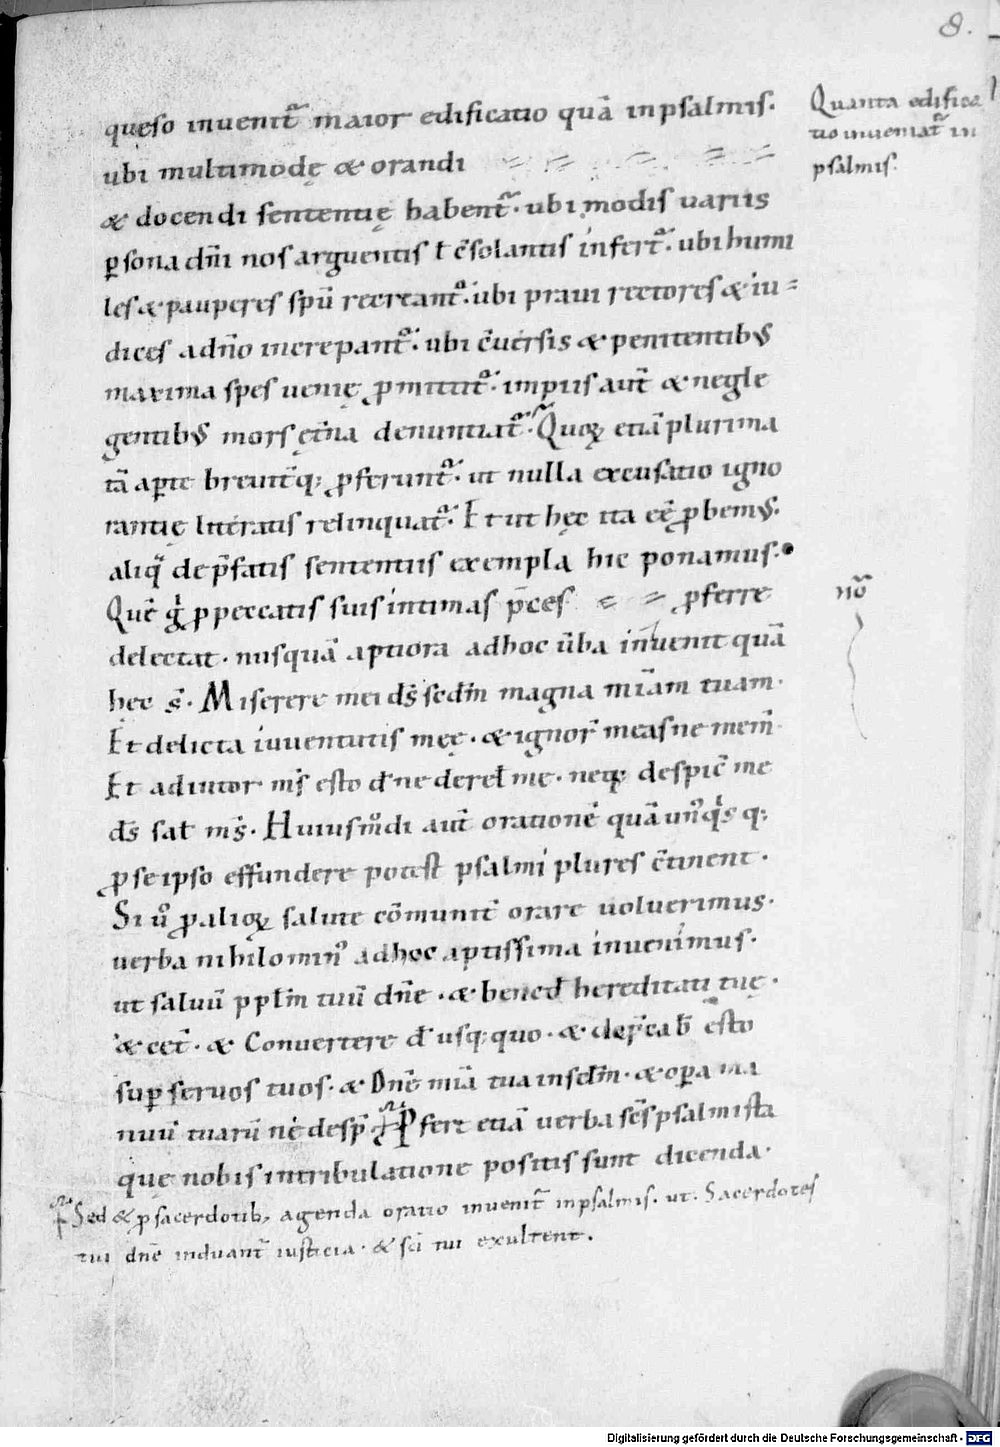 8.
queso inuenit᷑ maior edificatio quā inpsalmis.
ubi multimodę & orandi
& docendi sententię habent᷑. ubi modis uariis
ꝑsona dn̄i nos arguentis ł c̄solantis infert᷑. ubi humi
les & pauperes spū recreant᷑. ubi praui rectores & iu=
dices adn̄o increpant᷑. ubi c̄uersis & penitentibus
maxima spes uenię ꝓmittit᷑. impiis aut̄ & negle
gentibus mors ęt̄na denuntiat᷑. Quoꝝ etiā plurima
tā aꝑte breuit̄q; ꝓferunt᷑. ut nulla excusatio igno
rantię litteratis relinquat᷑. Et ut hęc ita eē ꝓbemus.
aliq̄ de p̄fatis sententiis exempla hic ponamus.
Quē g̊ ꝓ peccatis suis intimas p̄ces = = ꝓferre
delectat. nusquā aptiora adhoc ūba inuenit quā
hęc s̄. Miserere mei ds̄ scdm̄ magna mīam tuam.
Et delicta iuuentutis meę. & ignor̄ meas ne mem̄.
Et adiutor ms̄ esto dn̄e derel̄ me. neq; despic̄ me
ds̄ sal̄ ms̄. Huiusm̊di aut̄ orationē quā un᷒qͥsq;
ꝓ se ipso effundere potest psalmi plures c̄tinent.
Si ů ꝓ alioꝝ salute cōmunit̄ orare uoluerimus.
uerba nihilomin᷒ adhoc aptissima inuenimus.
ut saluū ppłm tuū dn̄e. & bened̄ hereditati tuę.
& cet̄. & Conuertere d̄ usq; quo. & dep̄cab̄ esto
suꝑ seruos tuos. & Dn̄e mīa tua inscłm. & oꝑa ma
nuū tuarū nē desp̄. Pfert etiā uerba scs̄ psalmista
quę nobis intribulatione positis sunt dicenda.
Sed & ꝓ sacerdotib; agenda oratio inuenit᷑ inpsalmis. ut. Sacerdotes
tui dn̄e induant᷑ iusticia. & sc̄i tui exultent.
Quanta edifica
tio inueniat᷑ in
psalmis.
no᷑
Digitalisierung gefördert durch die Deutsche Forschungsgemeinschaft - DFG